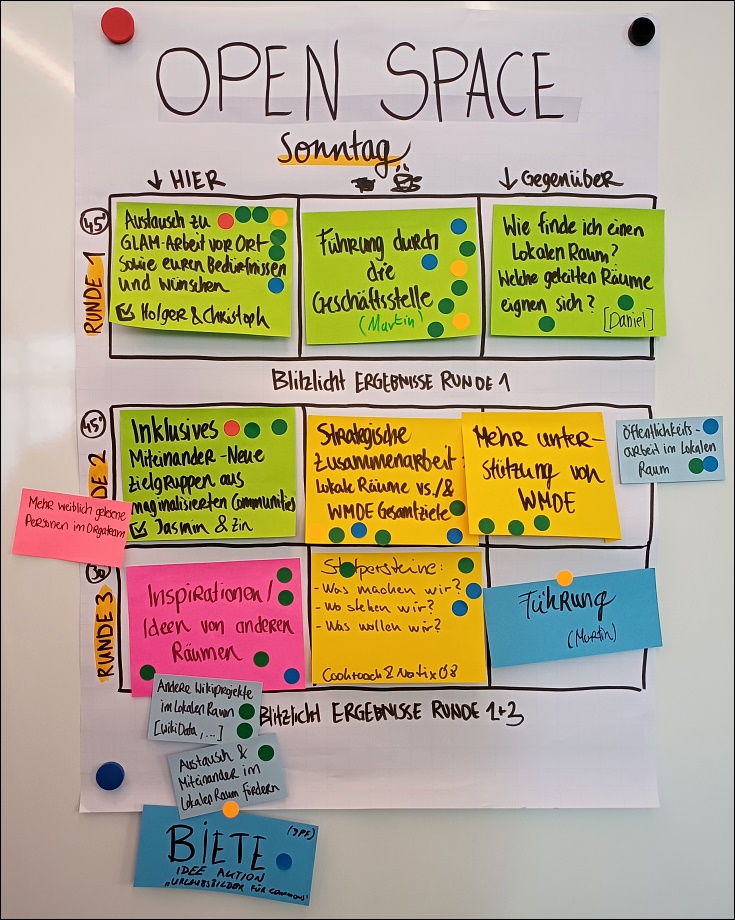 OPEN SPACE
Sonntag
↓ HIER
↓ Gegenüber
45'
RUNDE 1
Austausch zu
GLAM-Arbeit vor Ort
sowie euren Bedürfnissen
und Wünschen
Holger & Christoph
Führung durch
die
Geschäftsstelle
(Martin)
Wie finde ich einen
Lokalen Raum?
Welche geteilten Räume
eignen sich?
[Daniel]
Blitzlicht ERGEBNISSE RUNDE 1
45'
DE 2
Inklusives
Miteinander - Neue
Zielgruppen aus
maginalisierten Communities
Jasmin & Zin
Strategische
Zusammenarbeit
Lokale Räume vs./&
WMDE Gesamtziele
Mehr unter-
stützung von
WMDE
Öffentlichkeits-
arbeit im Lokalen
Raum
Mehr weiblich gelesene
Personen im Orgateam
30'
RUNDE 3
Inspirationen /
Ideen von anderen
Räumen
Stolpersteine:
- Was machen wir?
- Wo stehen wir?
- Was wollen wir?
Cockroach & Matix08
Führung
(Martin)
Andere Wikiprojekte
im Lokalen Raum
[WikiData, ...]
Blitzlicht ERGEBNISSE RUNDE 1+3
Austausch &
Miteinander im
Lokalen Raum fördern
BIETE
IDEE AKTION
"URLAUBSBILDER FÜR COMMONS"